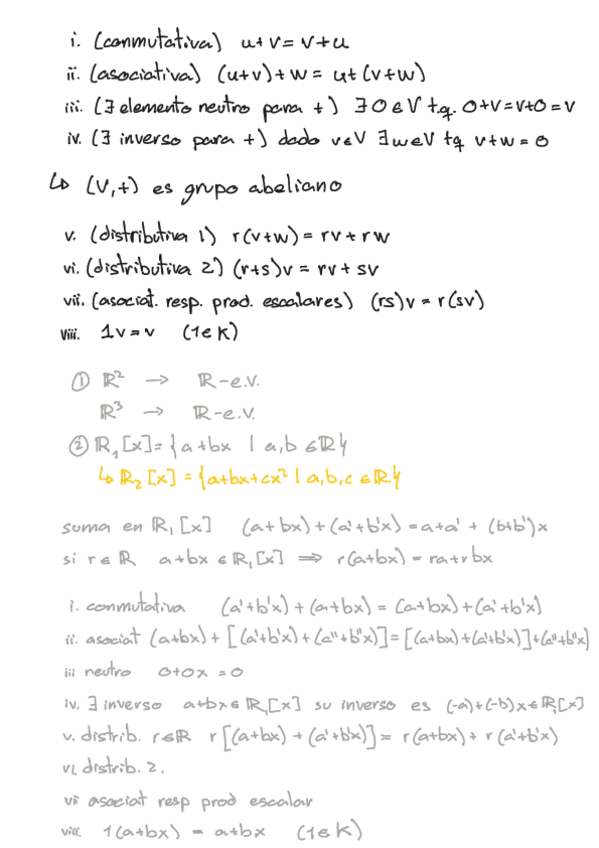 i. (conmutativa) u+v = v+u
ii. (asociativa) (u+v)+w = u+(v+w)
iii. (∃ elemento neutro para +) ∃ 0 ∈ V t.q. 0+v = v+0 = v
iv. (∃ inverso para +) dado v∈V ∃w∈V tq v+w = 0
↳ (V,+) es grupo abeliano
v. (distributiva 1) r(v+w) = rv + rw
vi. (distributiva 2) (r+s)v = rv + sv
vii. (asociat. resp. prod. escalares) (rs)v = r(sv)
viii. 1v = v (1∈K)
① ℝ² → ℝ-e.v.
ℝ³ → ℝ-e.v.
② ℝ₁[x] = {a+bx | a,b ∈ℝ}
↳ ℝ₂[x] = {a+bx+cx² | a,b,c ∈ℝ}
suma en ℝ₁[x] (a+bx)+(a'+b'x) = a+a' + (b+b')x
si r∈ℝ a+bx ∈ ℝ₁[x] ⟹ r(a+bx) = ra+rbx
i. conmutativa (a'+b'x)+(a+bx) = (a+bx)+(a'+b'x)
ii. asociat (a+bx)+[(a'+b'x)+(a''+b''x)] = [(a+bx)+(a'+b'x)]+(a''+b''x)
iii neutro 0+0x = 0
iv. ∃ inverso a+bx∈ℝ₁[x] su inverso es (-a)+(-b)x∈ℝ₁[x]
v. distrib. r∈ℝ r[(a+bx)+(a'+b'x)] = r(a+bx)+r(a'+b'x)
vi. distrib. 2.
vii asociat resp prod escalar
viii. 1(a+bx) = a+bx (1∈K)